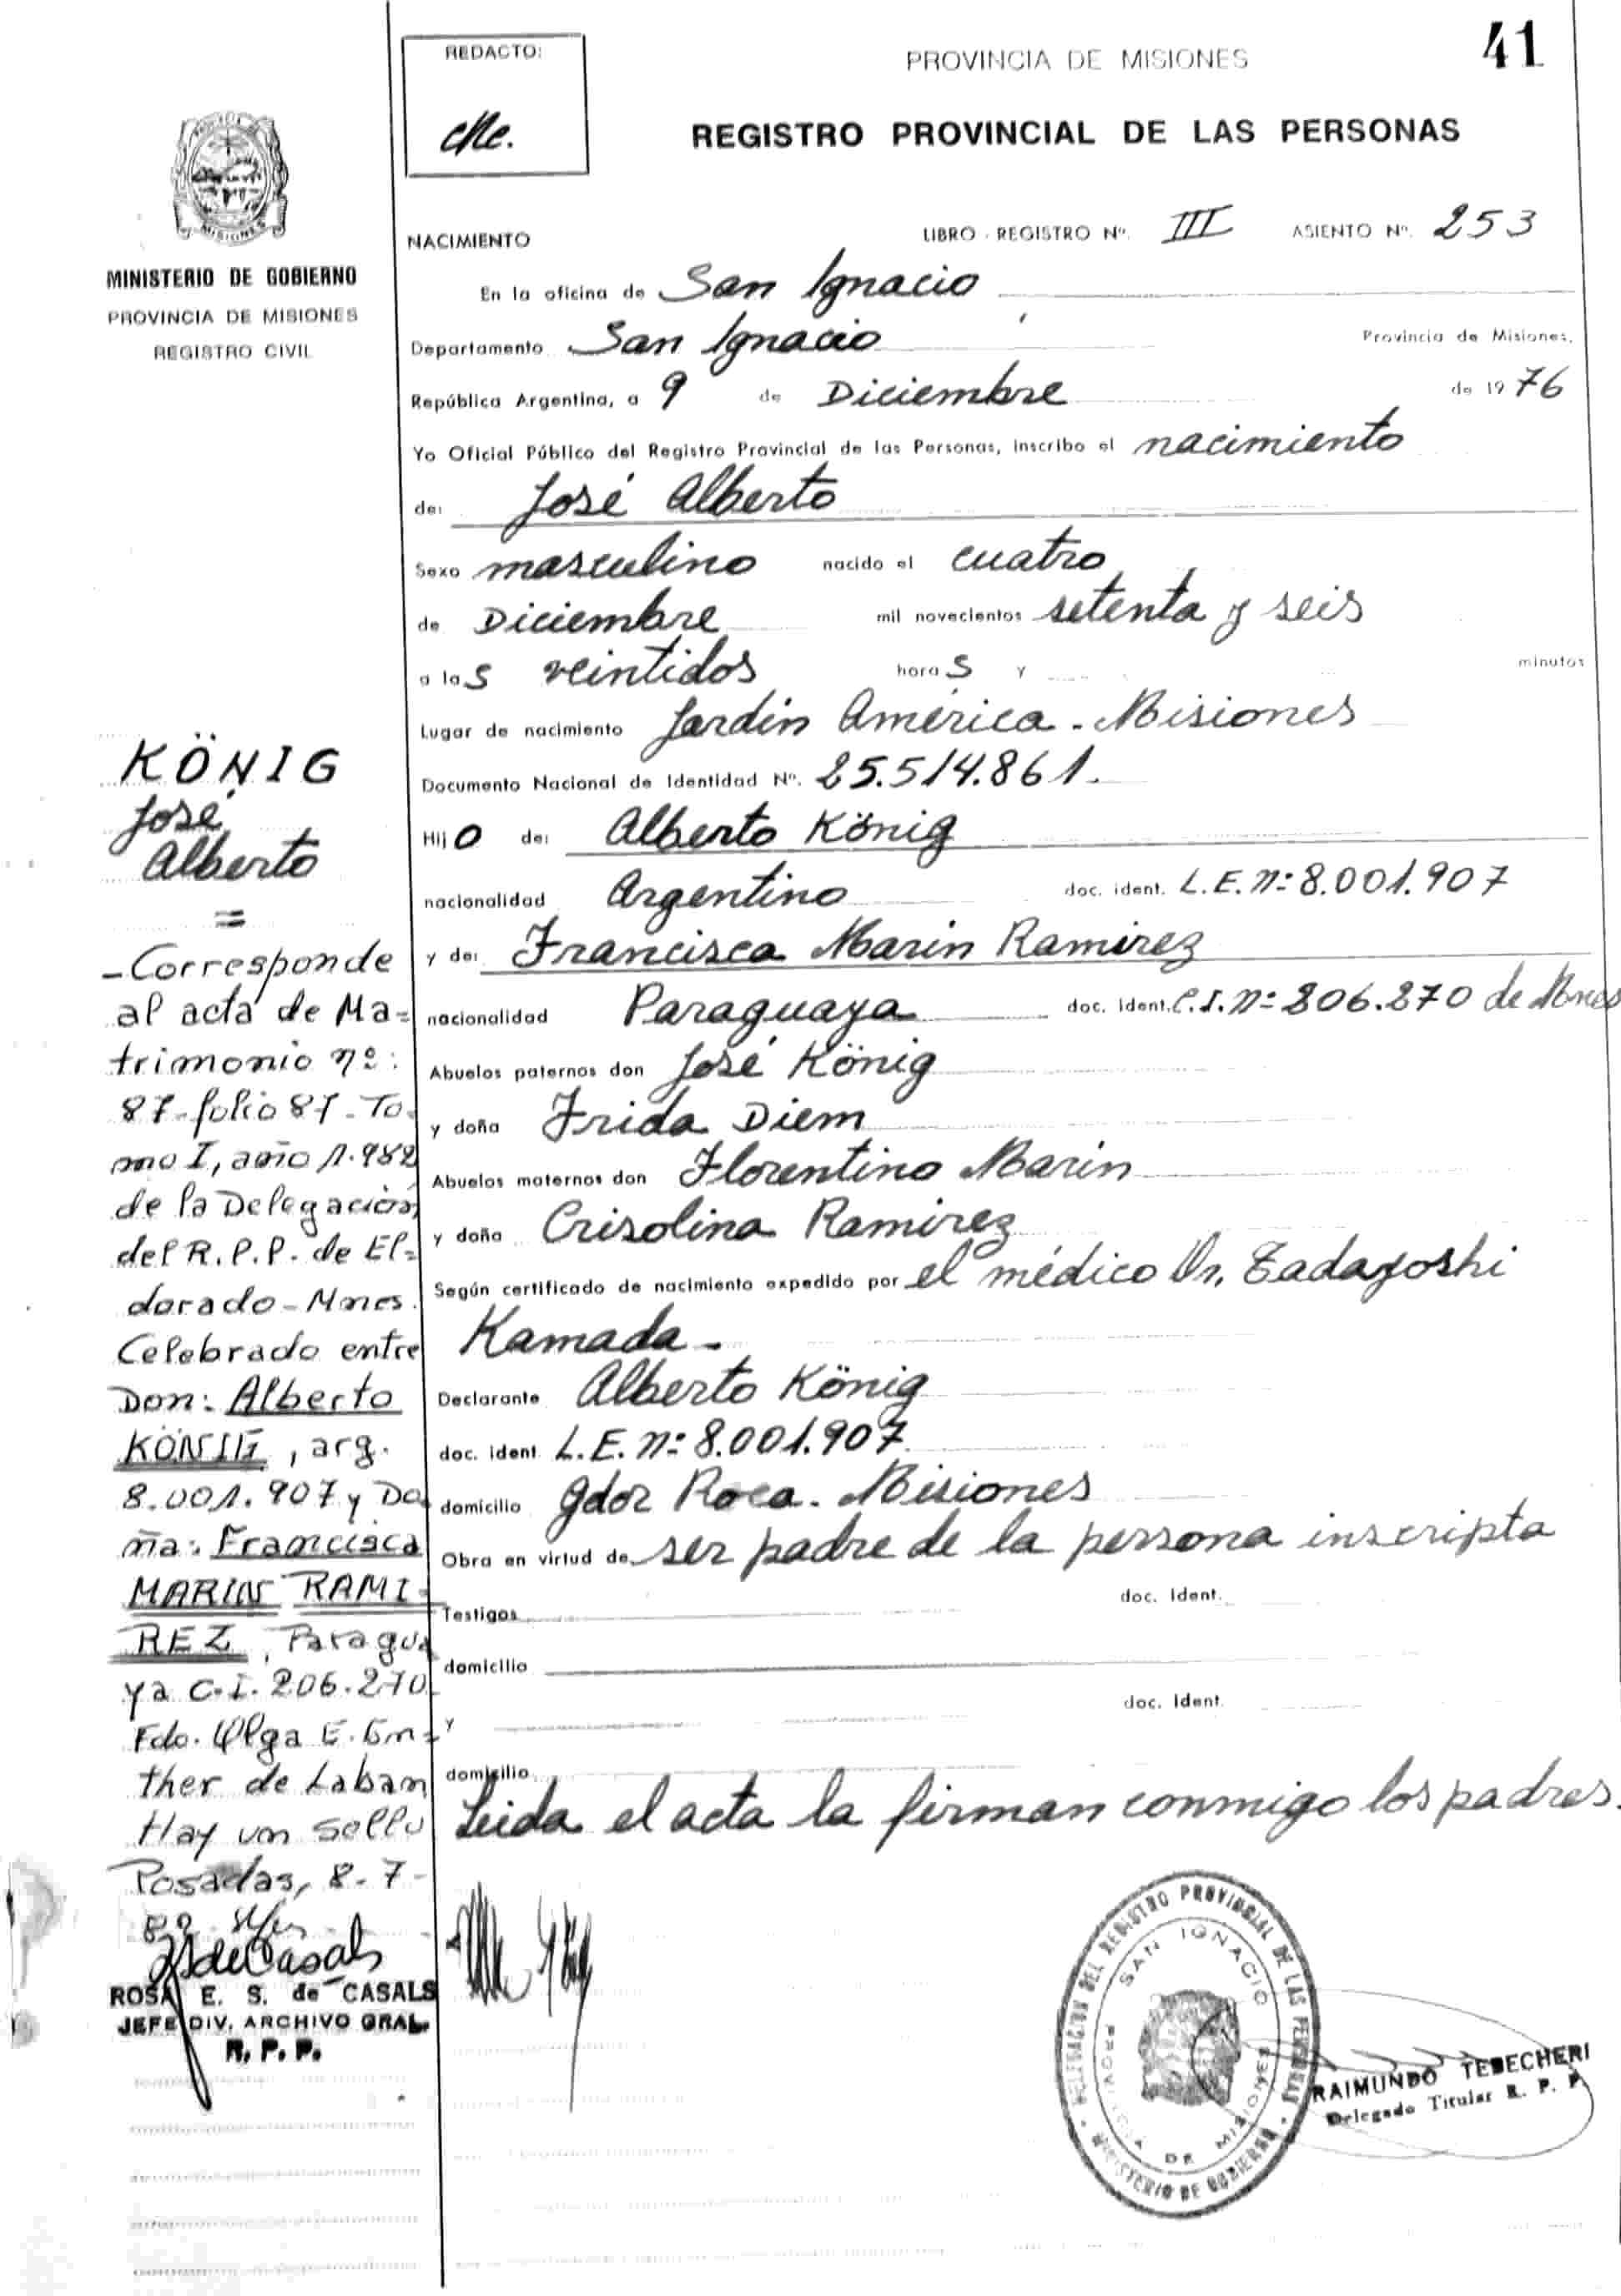 REDACTO:
PROVINCIA DE MISIONES
41
REGISTRO PROVINCIAL DE LAS PERSONAS
MISIONES
MINISTERIO DE GOBIERNO
PROVINCIA DE MISIONES
REGISTRO CIVIL
NACIMIENTO
LIBRO - REGISTRO Nº. III ASIENTO Nº. 253
En la oficina de San Ignacio
Departamento San Ignacio Provincia de Misiones,
República Argentina, a 9 de Diciembre de 1976
Yo Oficial Público del Registro Provincial de las Personas, inscribo el nacimiento
de: José Alberto
Sexo masculino nacido el cuatro
de Diciembre mil novecientos setenta y seis
a las veintidos horas y minutos
Lugar de nacimiento Jardín América - Misiones
Documento Nacional de Identidad Nº. 25.514.861.
Hijo de: Alberto König
nacionalidad Argentino doc. ident. L.E. nº 8.001.907
y de: Francisca Marin Ramirez
nacionalidad Paraguaya doc. ident. C.I. nº 206.270 de Mnes
Abuelos paternos don José König
y doña Frida Diem
Abuelos maternos don Florentino Marin
y doña Crisolina Ramirez
Según certificado de nacimiento expedido por el médico Dr. Tadayoshi
Kamada -
Declarante Alberto König
doc. ident. L.E. nº 8.001.907
domicilio Gdor Roca - Misiones
Obra en virtud de ser padre de la persona inscripta
doc. Ident.
Testigos
domicilio
doc. Ident.
y
domicilio
Leida el acta la firman conmigo los padres.
KÖNIG
José
Alberto
=
- Corresponde
al acta de Ma=
trimonio nº:
87 - folio 87 - To
mo I, año 1.982
de la Delegación
del R.P.P. de El=
dorado - Mnes.
Celebrado entre
Don: Alberto
KÖNIG, arg.
8.001.907 y Do
ña: Francisca
MARIN RAMI-
REZ, Paragua
ya C.I. 206.270
Fdo. Olga E.
ther de Laban
Hay un sello
Posadas, 8-7-
82
ROSA E. S. de CASALS
JEFE DIV. ARCHIVO GRAL.
R. P. P.
DELEGACION DEL REGISTRO PROVINCIAL DE LAS PERSONAS
MINISTERIO DE GOBIERNO
SAN IGNACIO
PROVINCIA DE MISIONES
RAIMUNDO TEBECHERI
Delegado Titular R. P. P.